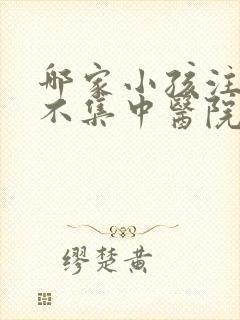 那家小孩注
不集中醫院
繆楚黃